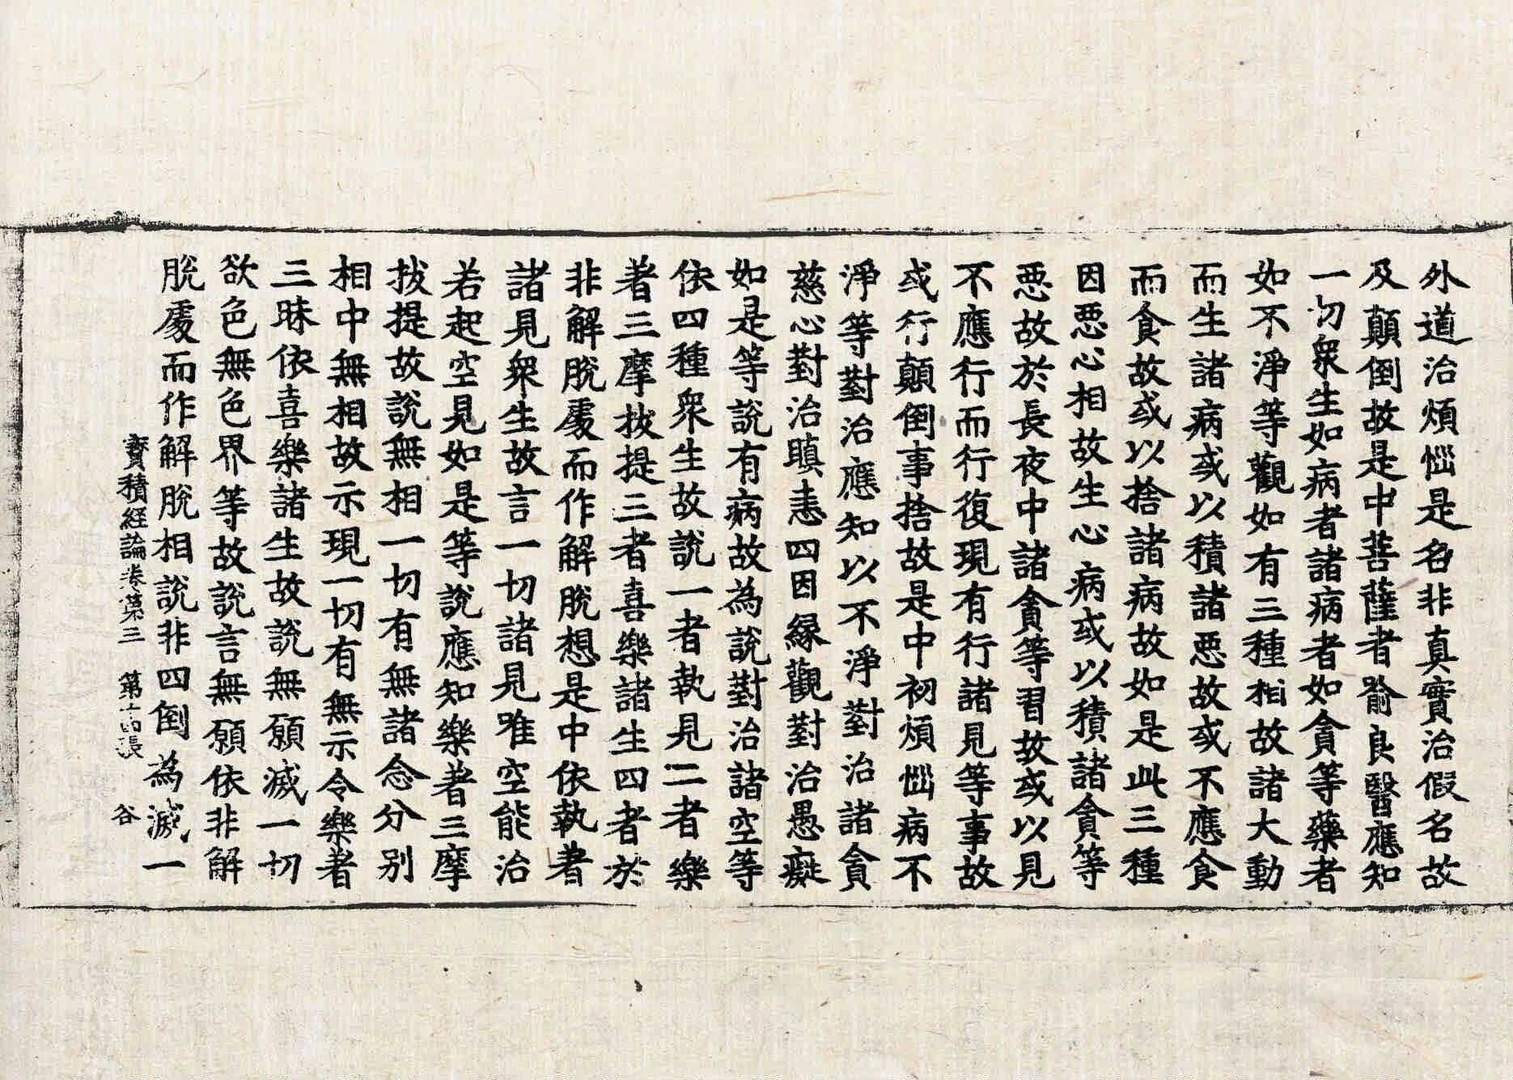 外道治煩惱是名非真實治假名故
及顛倒故是中菩薩者喻良醫應知
一切衆生如病者諸病者如貪等藥者
如不淨等觀如有三種相故諸大動
而生諸病或以積諸惡故或不應食
而食故或以捨諸病故如是此三種
因惡心相故生心病或以積諸貪等
惡故於長夜中諸貪等習故或以見
不應行而行復現有行諸見等事故
或行顛倒事捨故是中初煩惱病不
淨等對治應知以不淨對治諸貪
慈心對治瞋恚四因緣觀對治愚癡
如是等說有病故為說對治諸空等
依四種衆生故說一者執見二者樂
著三摩拔提三者喜樂諸生四者於
非解脫處而作解脫想是中依執著
諸見衆生故言一切諸見唯空能治
若起空見如是等說應知樂著三摩
拔提故說無相一切有無諸念分別
相中無相故示現一切有無示令樂著
三昧依喜樂諸生故說無願滅一切
欲色無色界等故說言無願依非解
脫處而作解脫相說非四倒為滅一
寶積經論卷第三 第十四張 谷